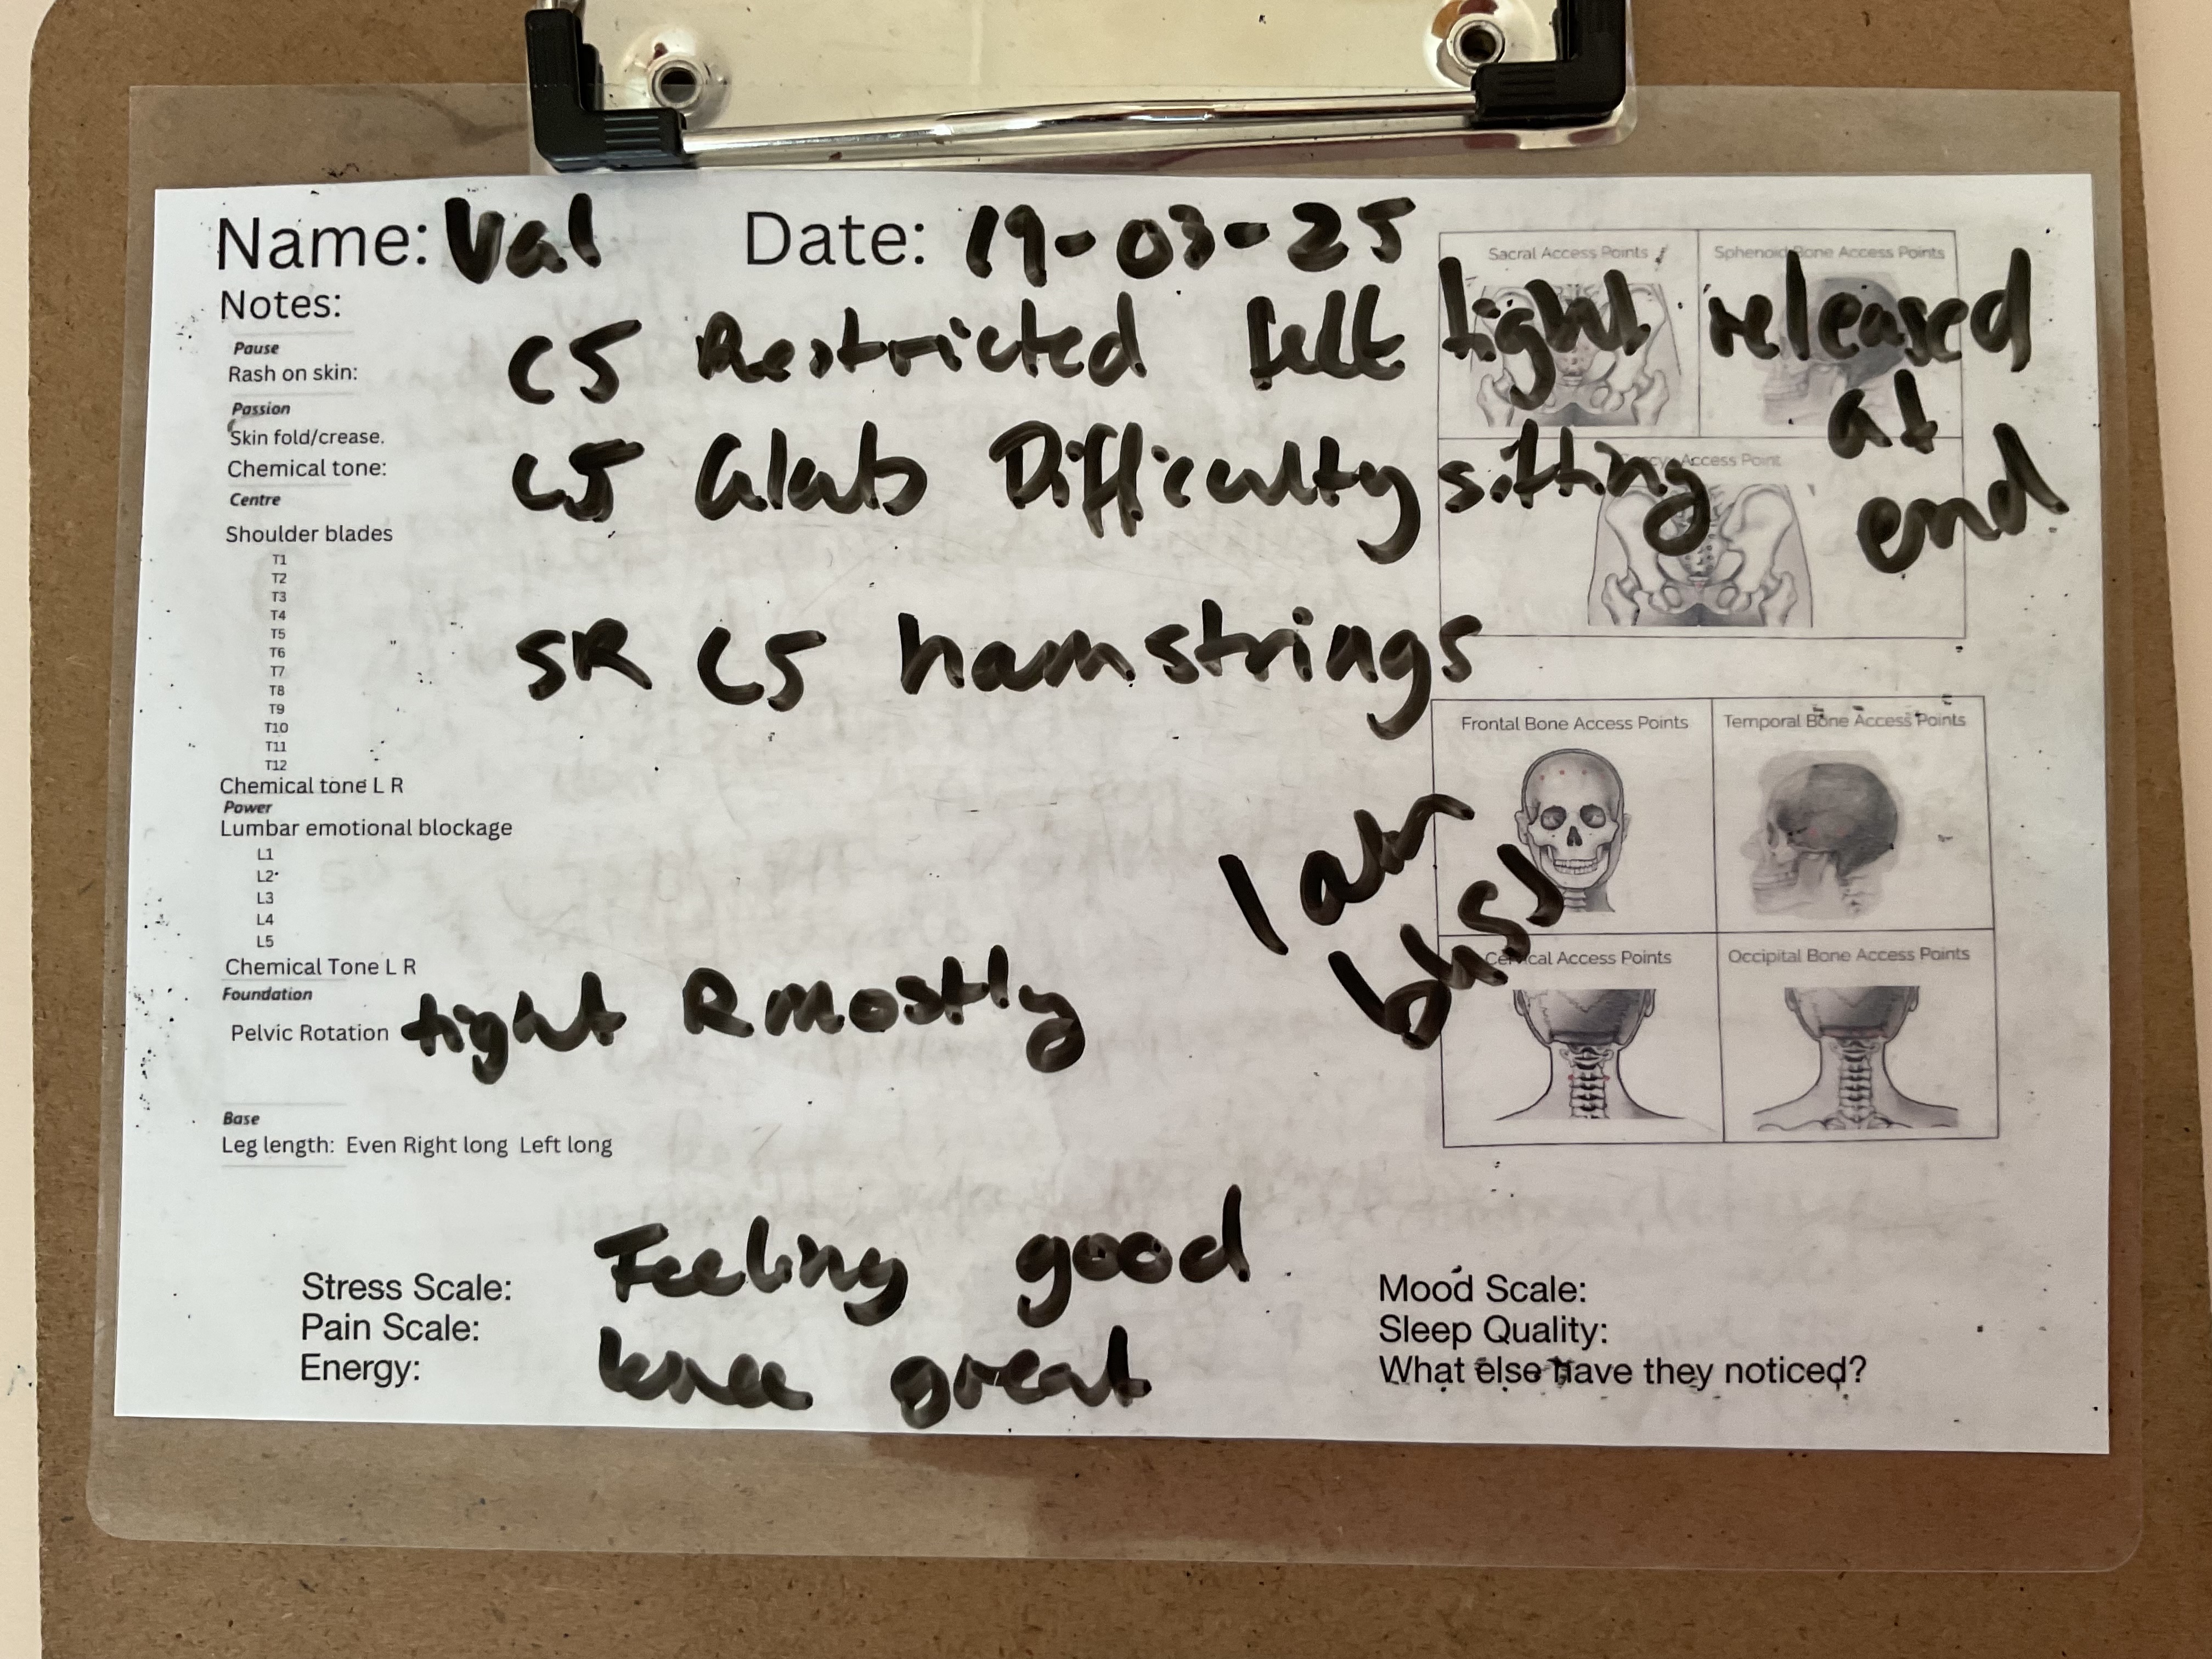 Name: Val Date: 19-03-25
Notes:
Pause
Rash on skin:
C5 Restricted felt tight released at end
Passion
Skin fold/crease.
C5 Glab Difficulty sitting
Chemical tone:
Centre
Shoulder blades
T1
T2
T3
T4
T5
T6
T7
T8
T9
T10
T11
T12
SR C5 hamstrings
Chemical tone L R
Power
Lumbar emotional blockage
L1
L2
L3
L4
L5
I am
Chemical Tone L R
Foundation
Pelvic Rotation tight R mostly
Base
Leg length: Even Right long Left long
Sacral Access Points
Sphenoid Bone Access Points
Access Point
Frontal Bone Access Points
Temporal Bone Access Points
Cervical Access Points
Occipital Bone Access Points
Feeling good
knee great
Stress Scale:
Pain Scale:
Energy:
Mood Scale:
Sleep Quality:
What else have they noticed?